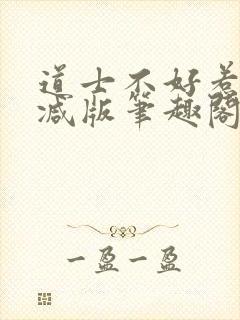 道士不好惹
减版笔趣阁
一盈一盈